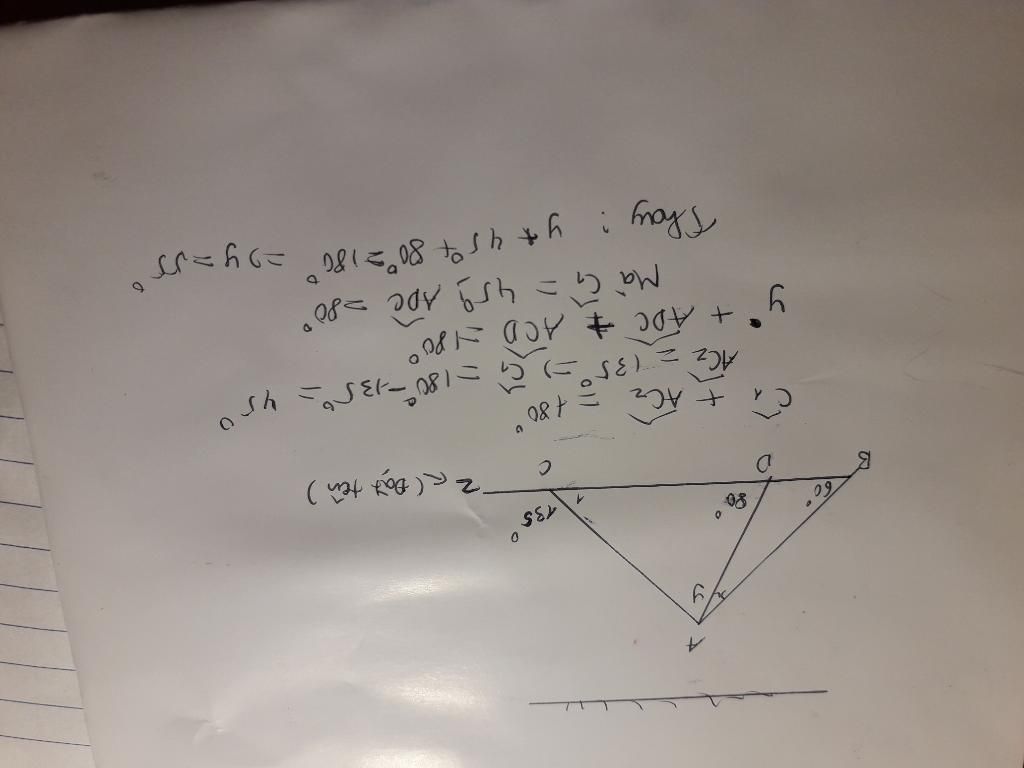 A
x y
B 60° D 80° 1 C 135° z (Đặt tên)
C1 + ACz = 180°
ACz = 135° => C1 = 180° - 135° = 45°
y + ADC + ACD = 180°
Mà C1 = 45°, ADC = 80°
Thay : y + 45° + 80° = 180° => y = 55°